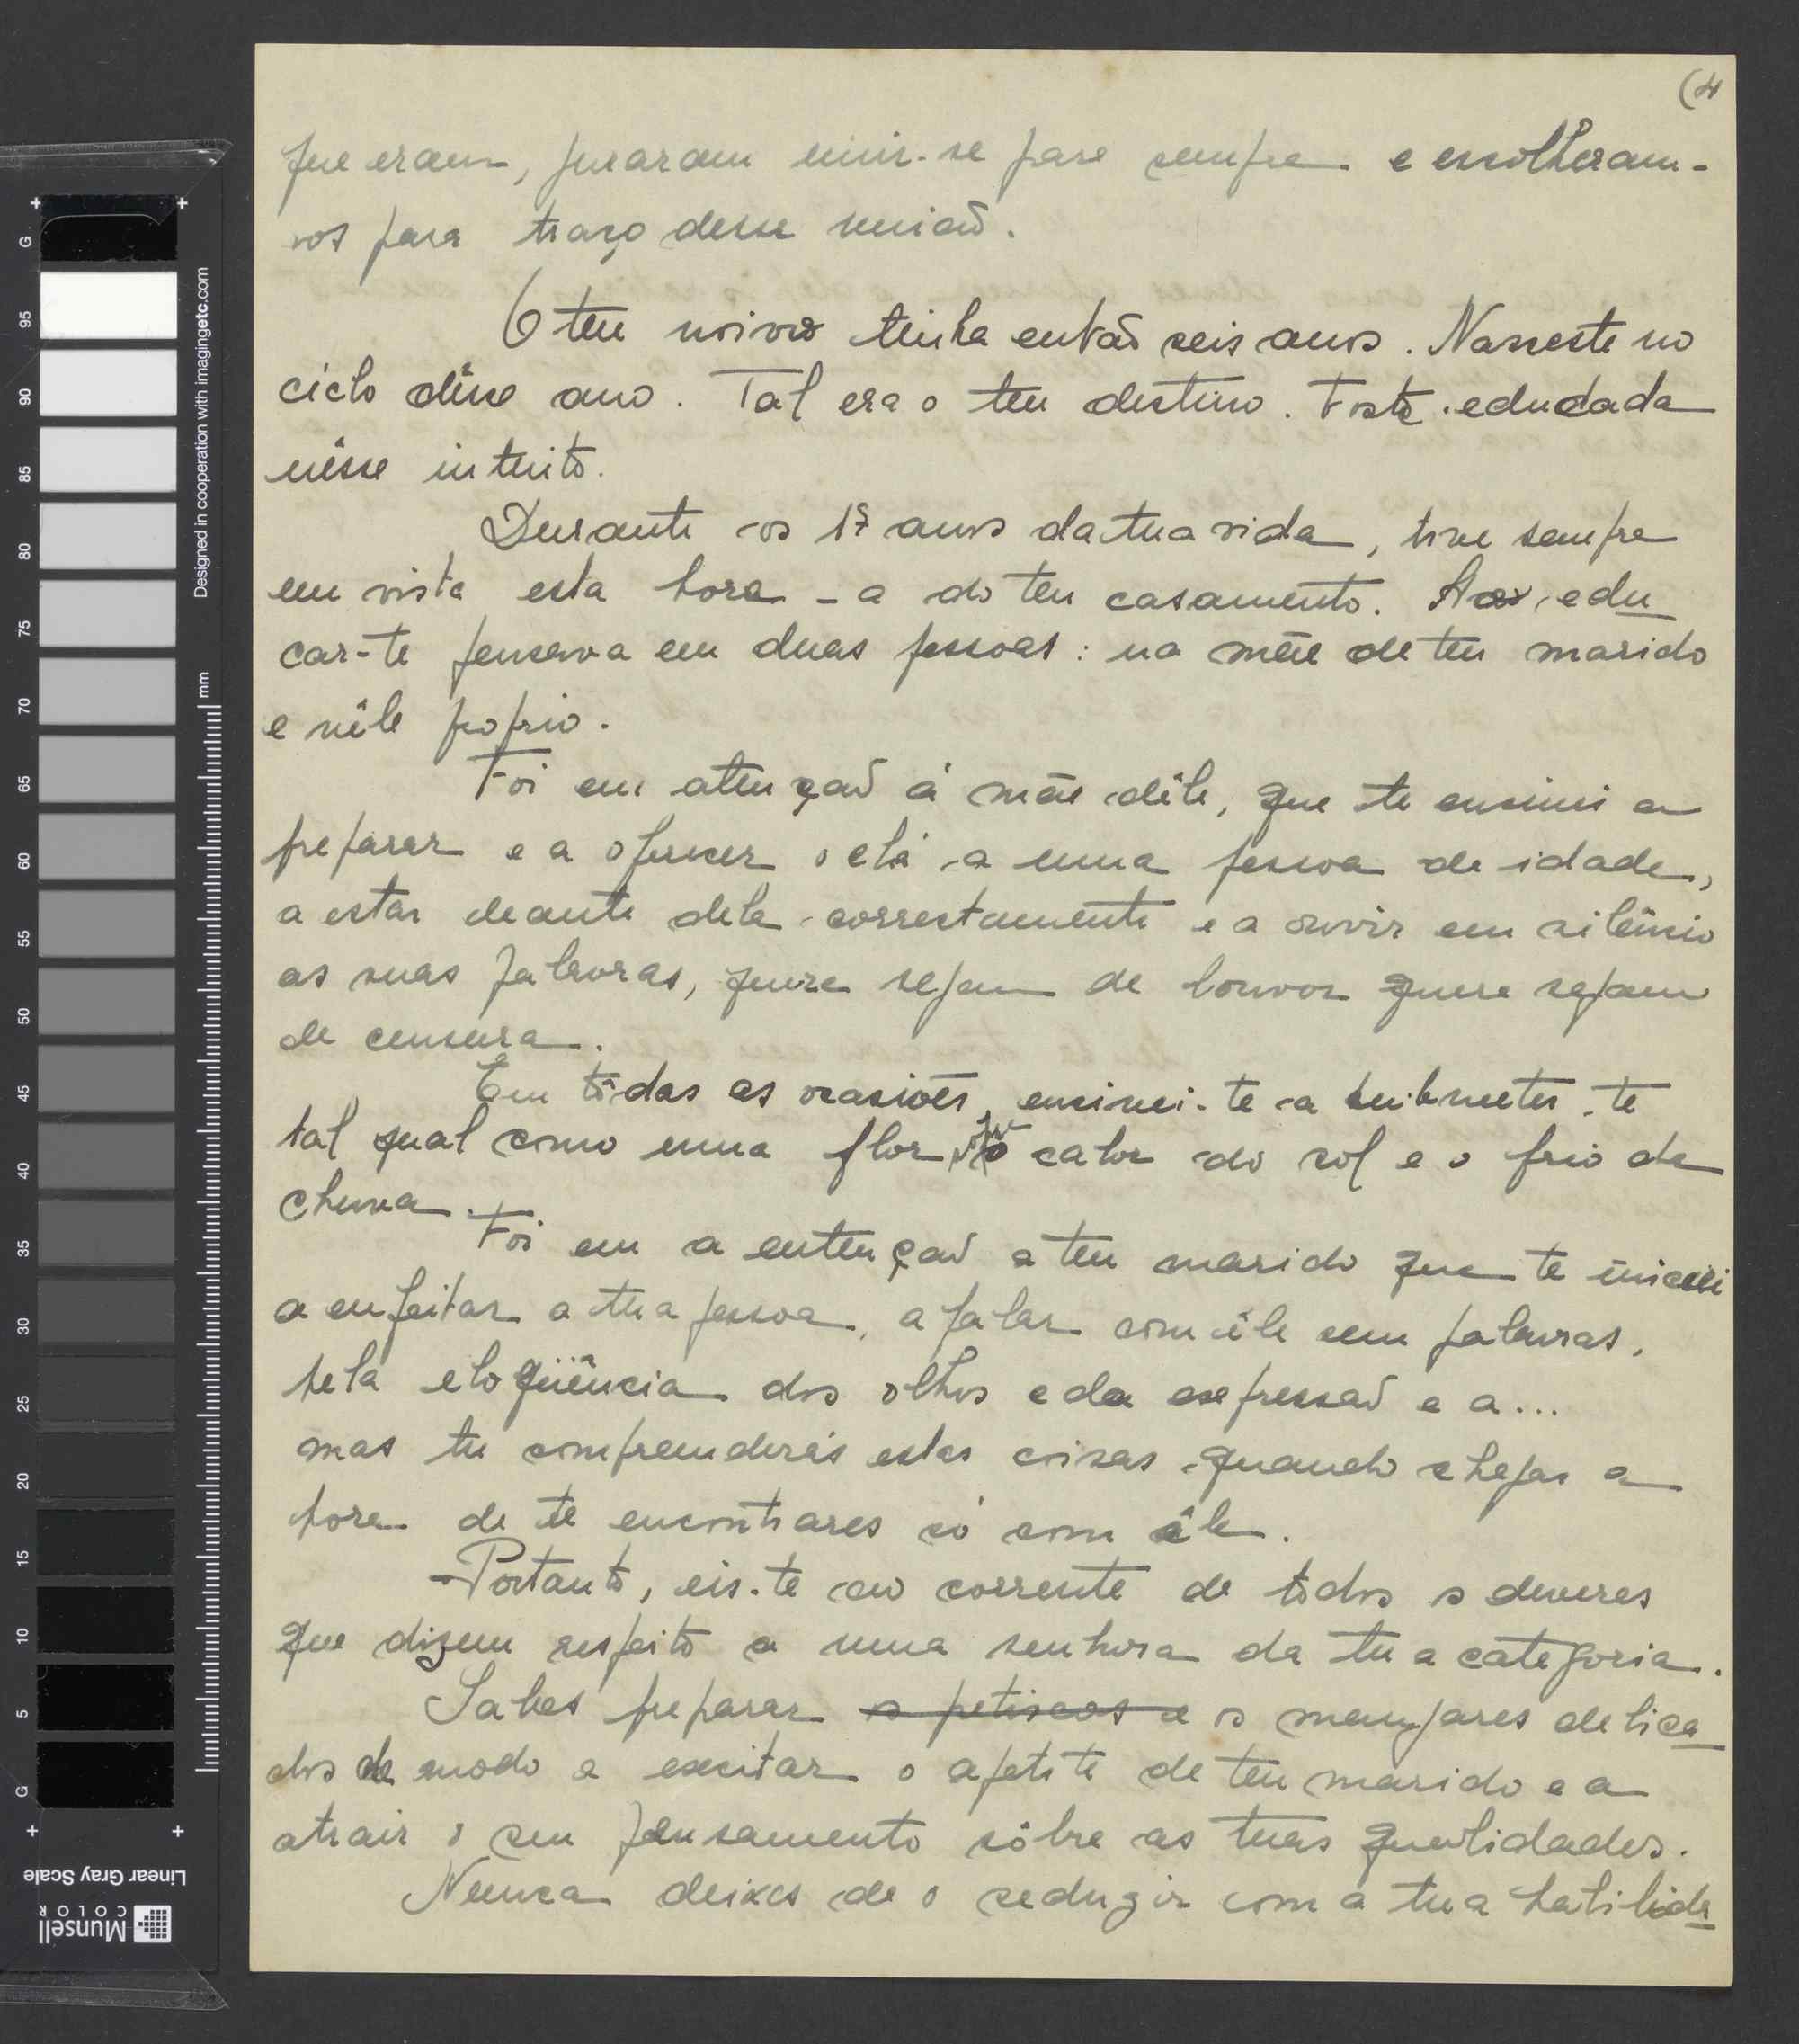 (4
que eram, juraram unir-se para sempre e escolheram-
vos para traço desse união.
O teu noivo tinha então seis anos. Nasceste no
ciclo dêsse ano. Tal era o teu destino. Foste educada
nêsse intuito.
Durante os 17 anos da tua vida, tive sempre
em vista esta hora - a do teu casamento. Ao edu
car-te pensava em duas pessoas: na mãe de teu marido
e nêle proprio.
Foi em atenção á mãe dêle, que te ensinei a
preparar e a oferecer o chá a uma pessoa de idade,
a estar deante dela correctamente e a ouvir em silêncio
as suas palavras, quere sejam de louvor quere sejam
de censura.
Em tôdas as ocasiões, ensinei-te a submeter-te
tal qual como uma flor sofre o calor do sol e o frio da
chuva.
Foi em a entenção a teu marido que te iniciei
a enfeitar a tua pessoa, a falar com êle sem palavras,
pela eloqüência dos olhos e da expressão e a...
mas tu compreenderás estas coisas quando chegar a
hora de te encontrares só com êle.
Portanto, eis-te ao corrente de todos os deveres
que dizem respeito a uma senhora da tua categoria.
Sabes preparar os petiscos e os manjares delica
dos de modo a excitar o apetite de teu marido e a
atrair o seu pensamento sôbre as tuas qualidades.
Nunca deixes de o seduzir com a tua habilida